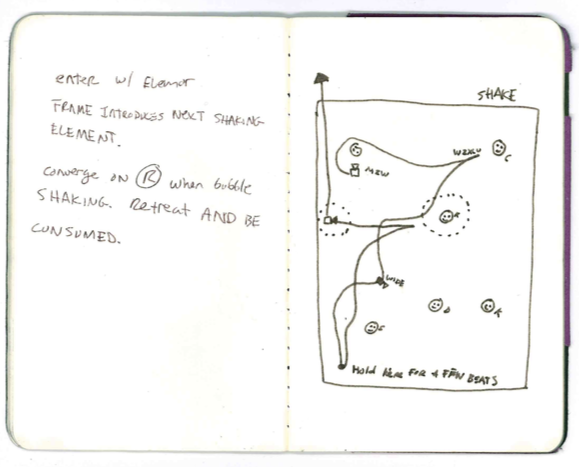 enter w/ Element
FRAME INTRODUCES NEXT SHAKING
ELEMENT.
converge on R when bubble
SHAKING. Retreat AND BE
CONSUMED.
SHAKE
C
R
WIDE
Hold Here FOR A FEW BEATS